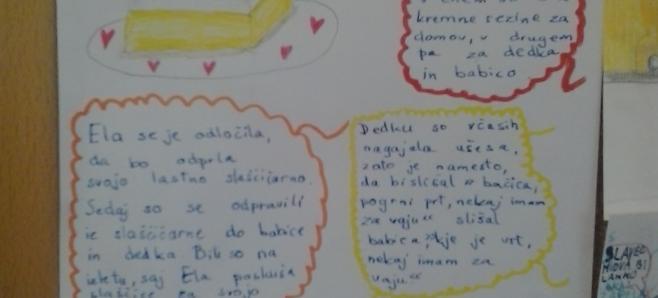 kremne rezine za
domov, v drugem
pa za dedka
in babico
Ela se je odločila,
da bo odprla
svojo lastno slaščičarno.
Sedaj so se odpravili
iz slaščičarne do babice
in dedka. Bili so na
izletu, saj Ela poskuša
slaščice za svojo
Dedku so včasih
nagajala ušesa,
zato je namesto,
da bi slišal » bačica,
pogrni prt, nekaj imam
za vaju« slišal
babica, »kje je vrt,
nekaj imam za
vaju.«
SLAVEC